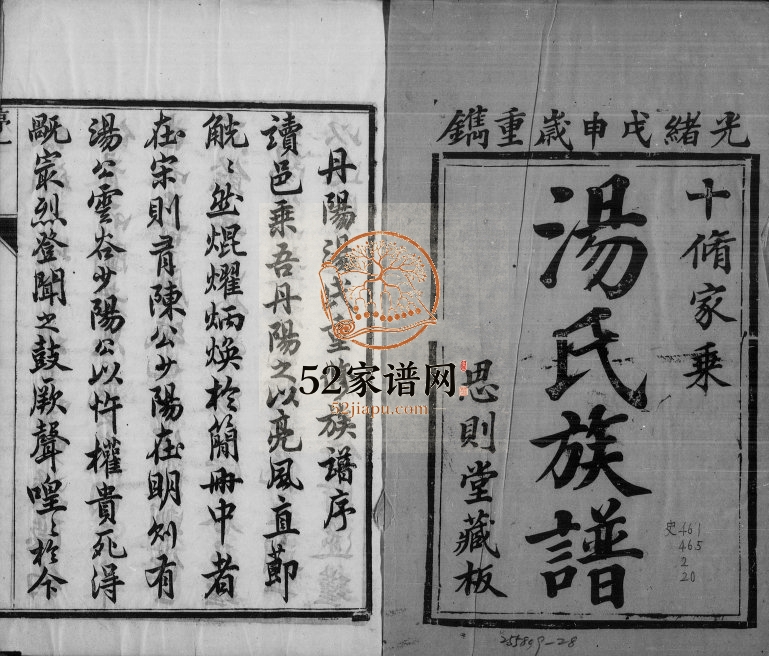 光緒戊申歲重鐫
十脩家乘
湯氏族譜
思則堂藏板
史461
465
2
20
255809-28
丹陽湯氏重脩族譜序
讀邑乘吾丹陽之以亮風直節
觥〻然焜燿炳煥於簡冊中者
在宋則有陳公少陽在明則有
湯公雲谷少陽公以忤權貴死得
嘅最烈登聞之鼓厥聲喤〻於今
序一
52家谱网
52jiapu.com